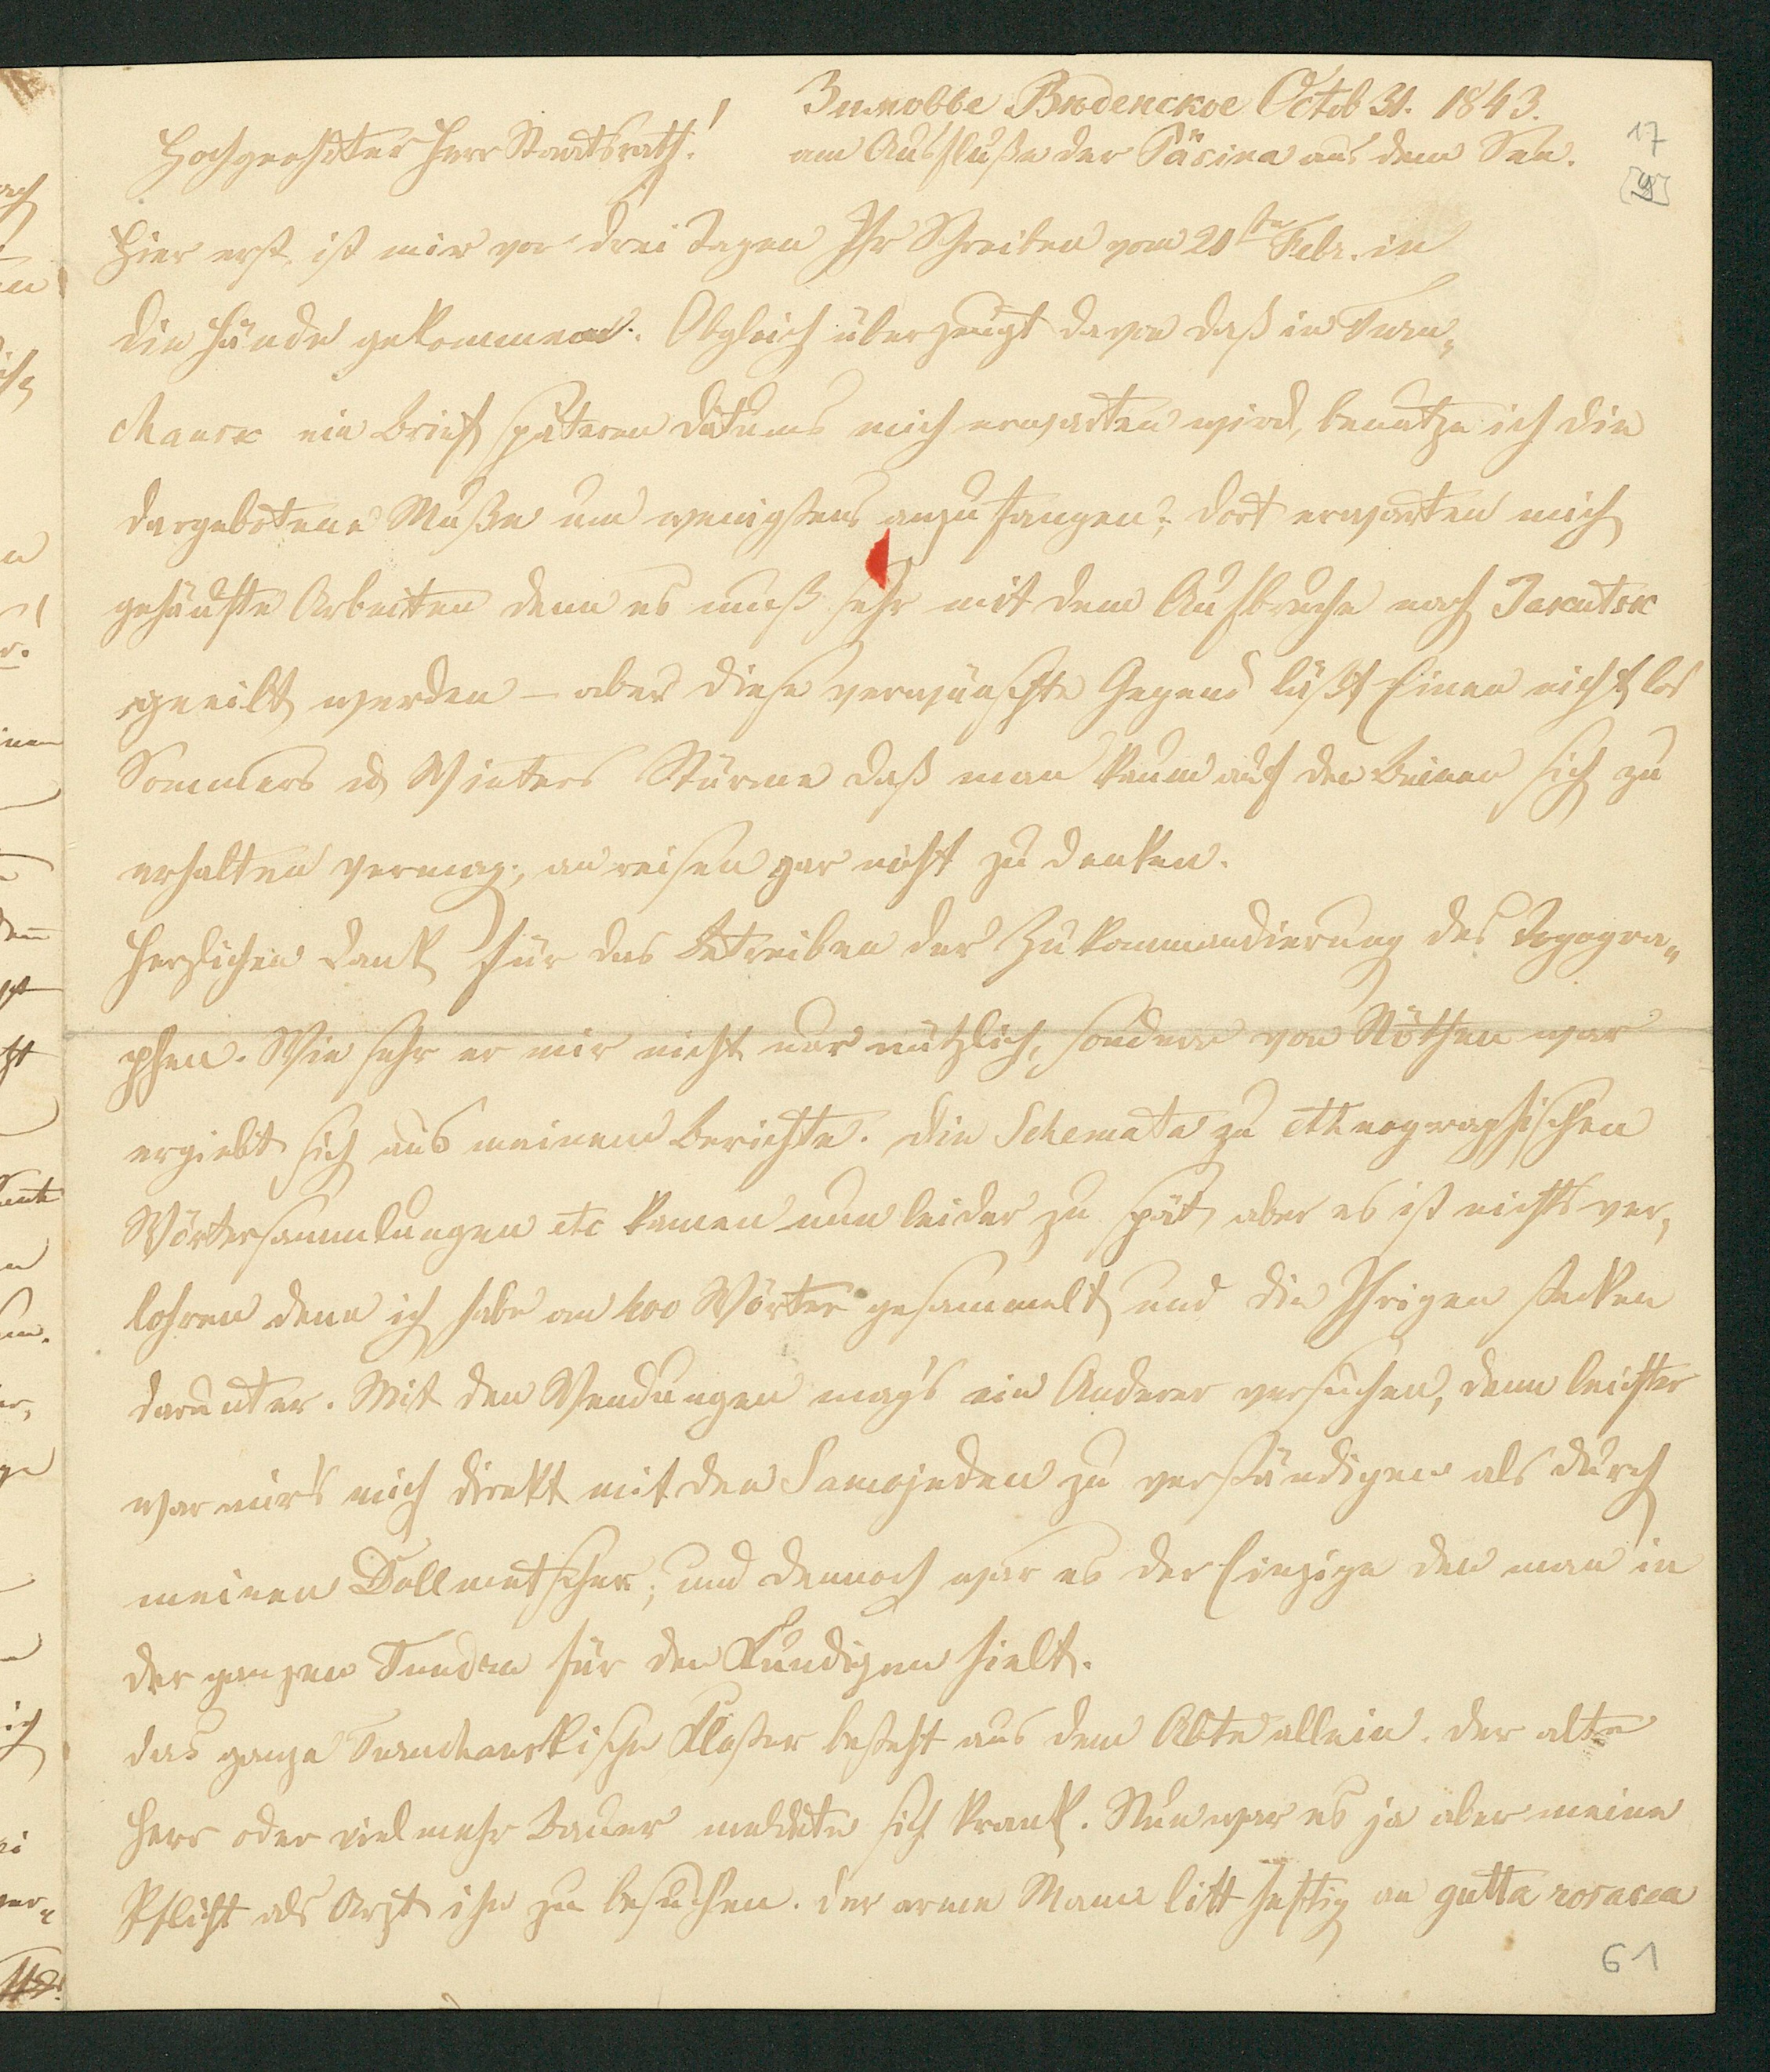 Зимовье Введенское Octob 31. 1843.
Hochgeehrter Herr Staatsrath!
am Ausfluße der Päsina aus dem See.
17
Hier erst ist mir vor drei Tagen Ihr Schreiben vom 21sten Febr. in
die Hände gekommen. Obgleich überzeugt davon daß in Turu-
chansk ein Brief späteren Datums mich erwarten wird, benutze ich die
dargebotene Muße um wenigstens anzufangen; dort erwarten mich
gehäufte Arbeiten denn es muß sehr mit dem Aufbruche nach Jakutsk
geeilt werden – aber diese verwünschte Gegend läßt Einen nicht los
Sommers u Winters Stürme daß man kaum auf den Beinen sich zu
erhalten vermag; an reisen gar nicht zu denken.
Herzlichen Dank für das Betreiben der Zukommandierung des Topogra-
phen. Wie sehr er mir nicht nur nützlich, sondern von Nöthen war
ergiebt sich aus meinem Berichte. Die Schemata zu ethnographischen
Wörtersammlungen etc kamen nun leider zu spät, aber es ist nichts ver-
lohren denn ich habe an 400 Wörter gesammelt und die Ihrigen stecken
darunter. Mit den Wendungen mag's ein Anderer versuchen, denn leichter
war mir's mich direkt mit den Samojeden zu verständigen als durch
meinen Dollmetscher; und dennoch war es der Einzige den man in
der ganzen Tundra für den Kundigen hielt.
Das ganze Turuchanskische Kloster besteht aus dem Abte allein. Der alte
Herr oder vielmehr Bauer meldete sich krank. Nun war es ja aber meine
Pflicht als Arzt ihn zu besuchen. Der arme Mann litt heftig an gutta rosacea
61